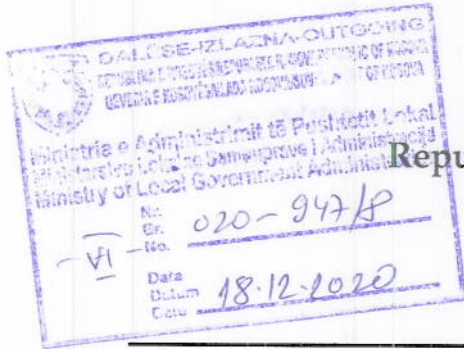 DALËSE-IZLAZNA-OUTGOING
Ministria e Administrimit të Pushtetit Lokal
Ministarstvo Lokalne Samouprave i Administracije
Ministry of Local Government Administ
Repu
Nr.
Br.
No. 020-947/8
VI
Data
Datum
Date 18.12.2020